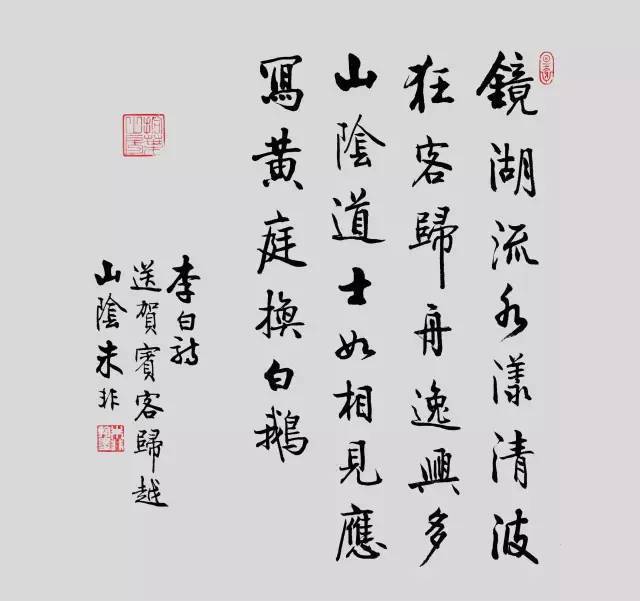 鏡湖流水漾清波
狂客歸舟逸興多
山陰道士如相見應
寫黃庭換白鵝
李白詩
送賀賓客歸越
山陰朱非